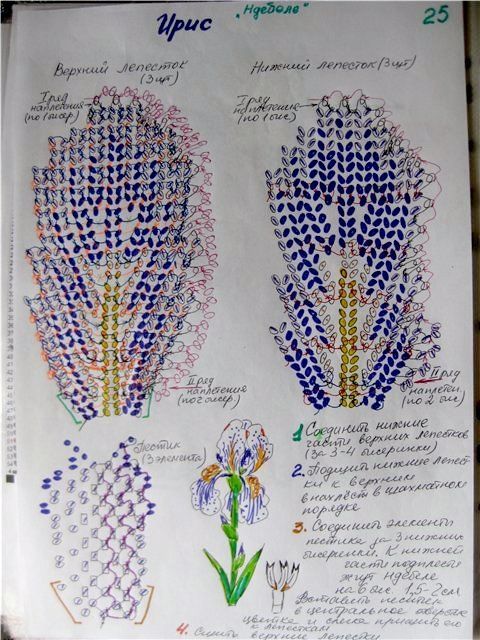 Ирис
„Ндебеле"
25
Верхний лепесток
(3 шт)
Нижний лепесток (3 шт)
I ряд
наплетение
(по 1 бисер.)
I ряд
наплетение
(по 1 бис)
II ряд
наплетения
(по 2 бисер.)
II ряд
наплетен.
(по 2 бис)
Пестик
(3 элемента)
1 Соединить нижние
части верхних лепестков
(за 3-4 бисеринки)
2. Подшить нижние лепест-
ки к верхним
внахлёст в шахматном
порядке
3. Соединить элементы
пестика за 3 нижних
бисеринки. К нижней
части подплести
жгут Ндебеле
на 6 бис 1,5-2 см.
Вставить пестик
в центральное отверстие
цветка и слегка пришить его
к лепесткам
4. Сшить верхние лепестки